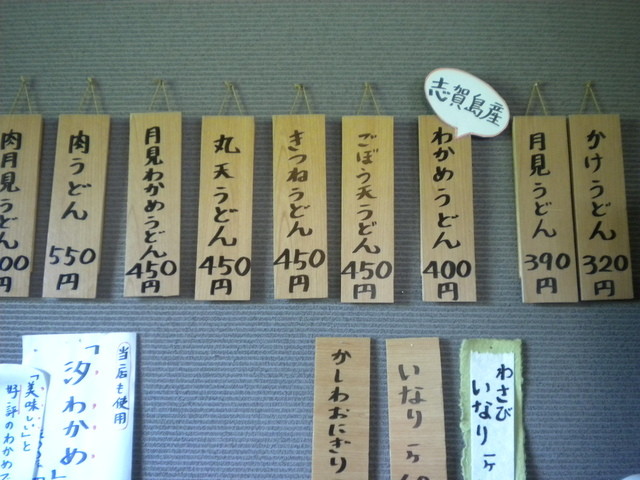 かけうどん
320
円
月見うどん
390
円
志賀島産
わかめうどん
400
円
ごぼう天うどん
450
円
きつねうどん
450
円
丸天うどん
450
円
月見わかめうどん
450
円
肉うどん
550
円
肉月見うどん
00
円
わさび
いなり 一ヶ
いなり 一ヶ
かしわおにぎり
当店も使用
「汐わかめ」
「美味しい」と
好評のわかめ